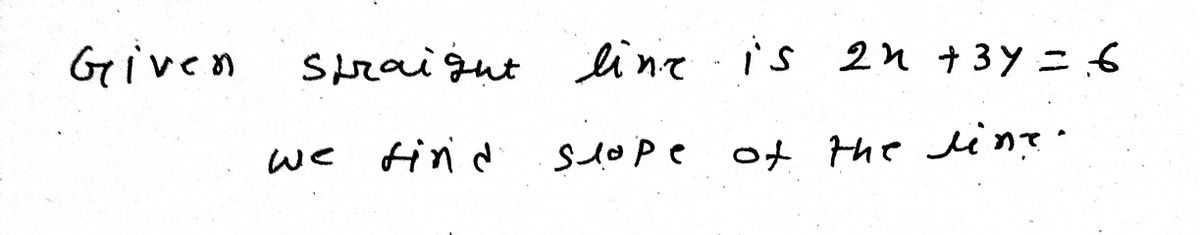 Given straight line is 2x + 3y = 6
we find slope of the line.